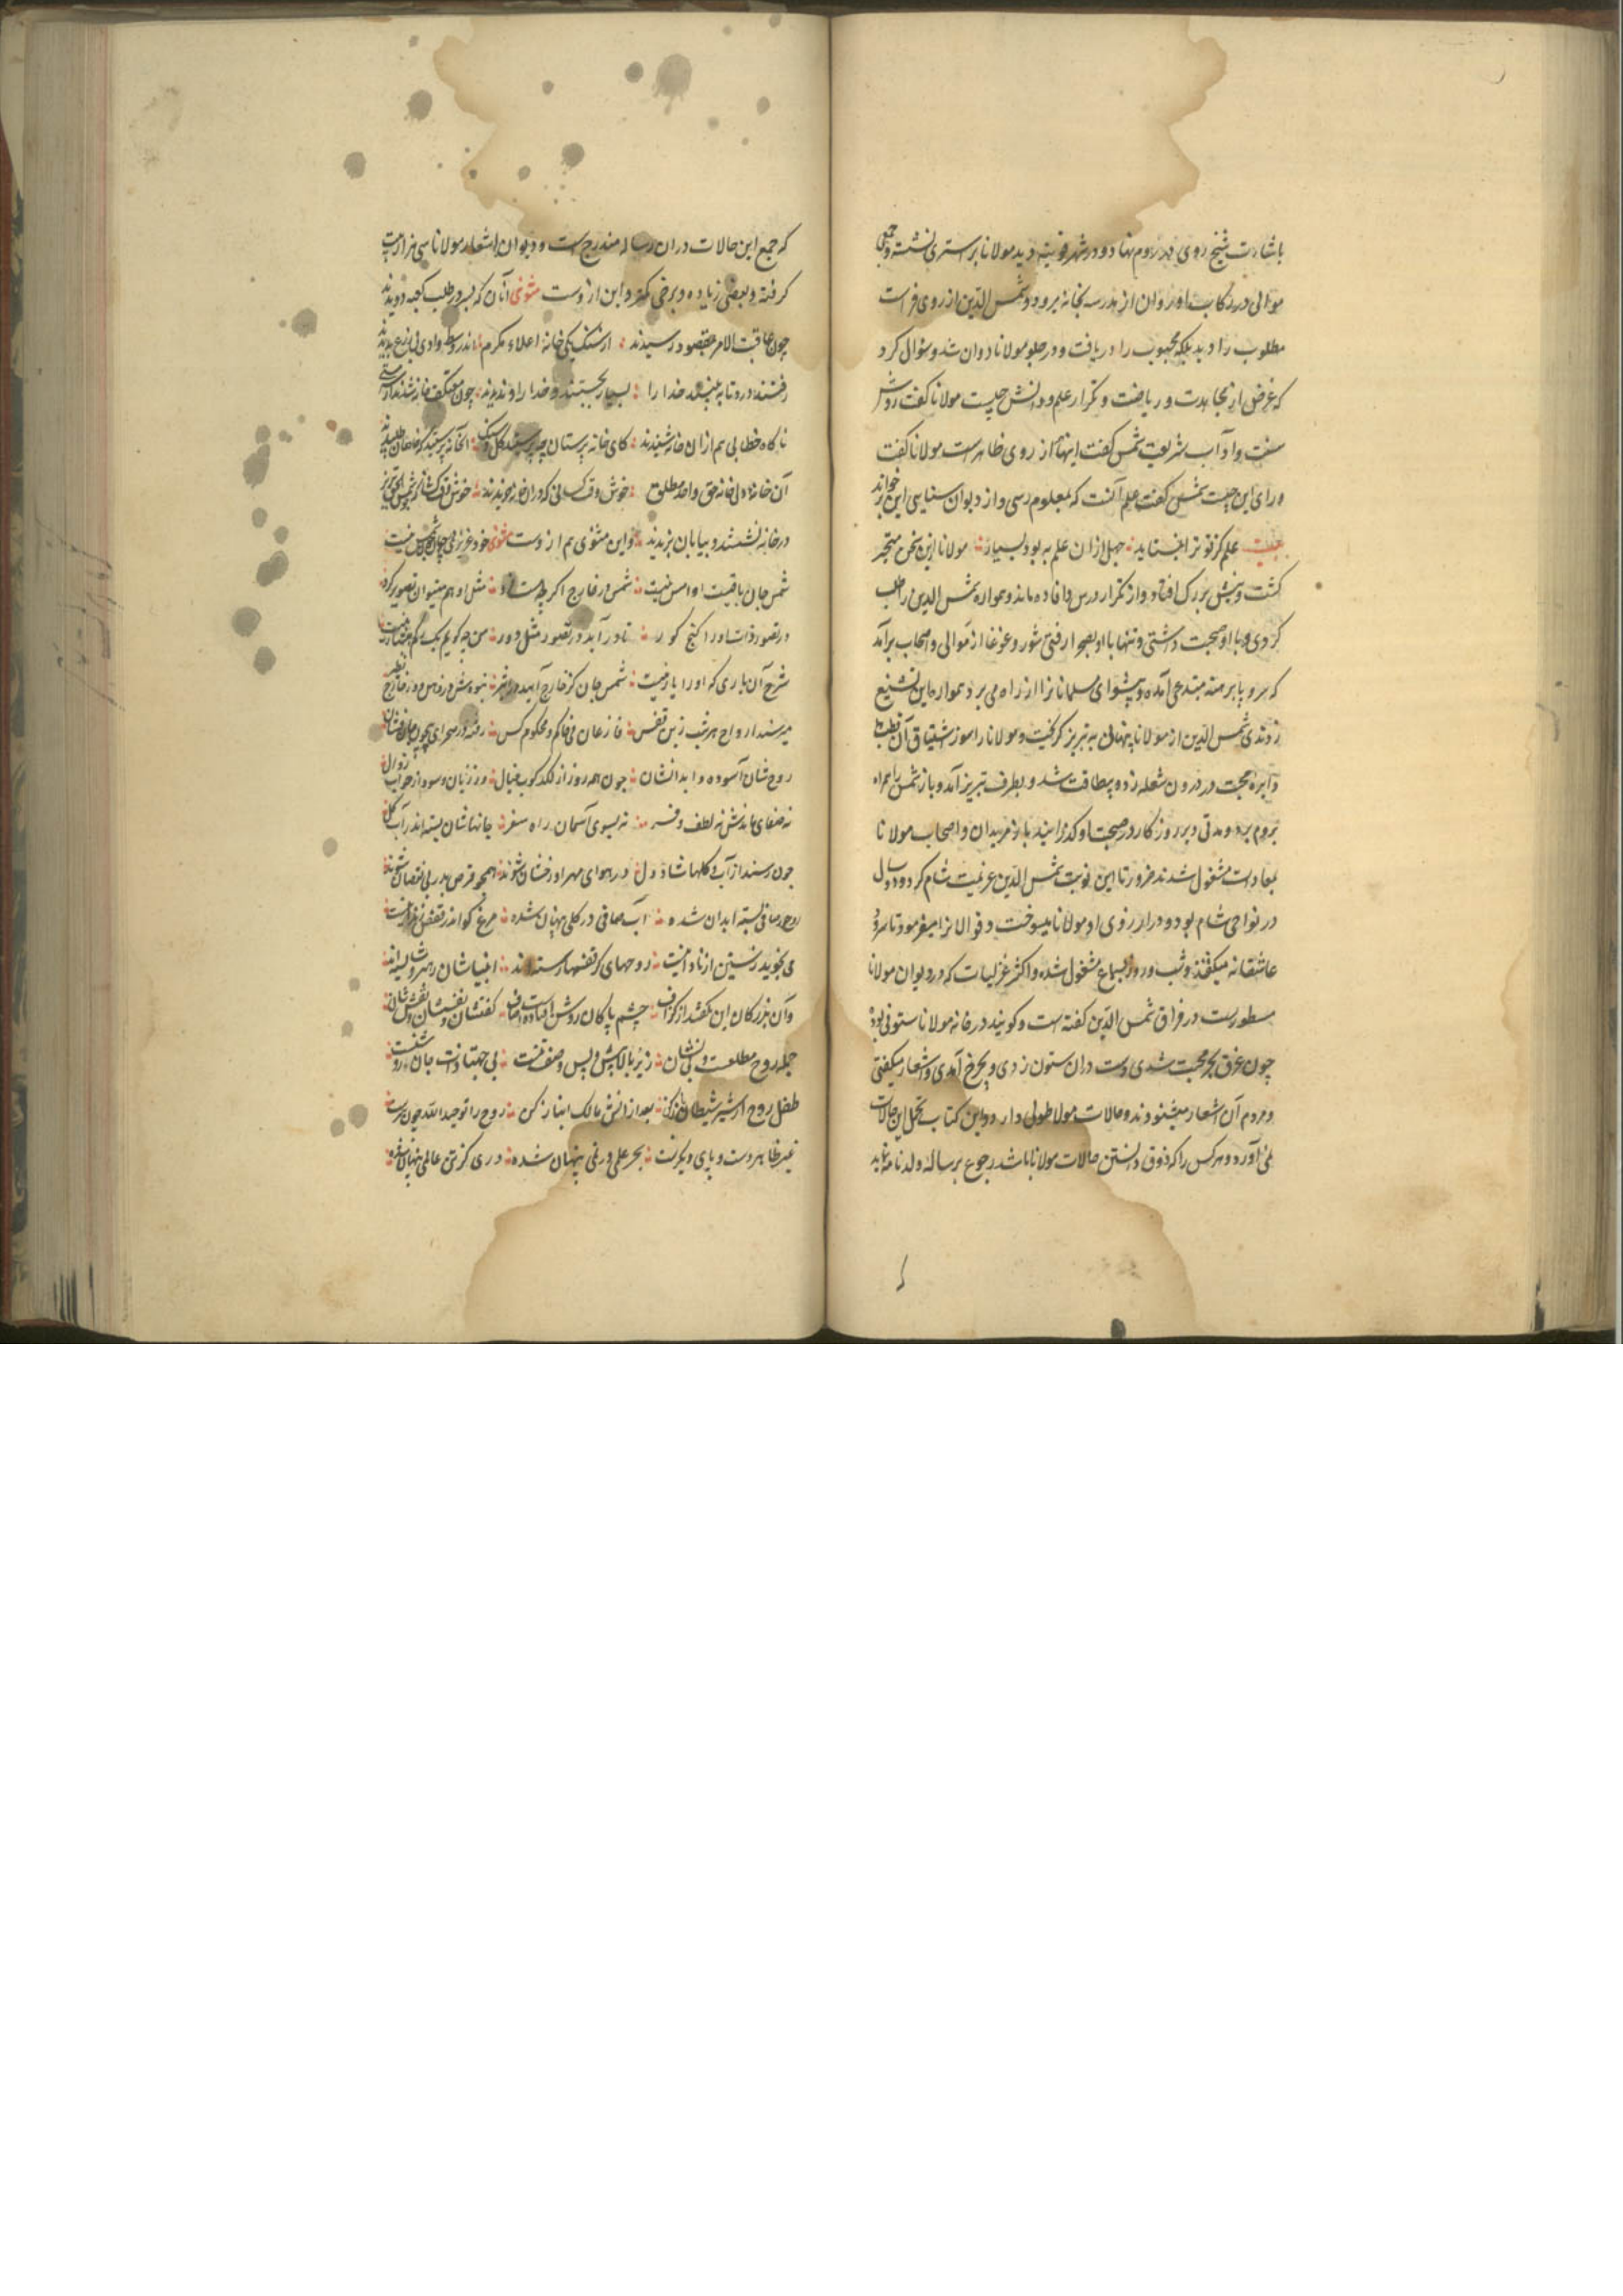 باشارت شیخ روی در روم نهاد و در شهر قونیه دید مولانا بر استری نشسته و جمعی
موالی در رکاب او روان از مدرسه بخانه میرود و شمس الدین از روی فراست
مطلوب را دید بلکه محبوب را دریافت و در جلو مولانا دوان شد و سؤال کرد
که غرض از مجاهدت و ریاضت و تکرار علم و دانش چیست مولانا گفت روش
سنت و آداب شریعت شمس گفت اینها از روی ظاهر است مولانا گفت
ورای این چیست شمس گفت علم آنست که بمعلوم رسی و از دیوان سنایی این بر خواند
بیت علم کز تو ترا نبستاند جهل ازان علم به بود بسیار مولانا ازین سخن متحیر
گشت و پیش بزرگ افتاد و از تکرار درس و افاده ماند و همواره شمس الدین را طلب
کردی و با او صحبت داشتی و تنها با او بصحرا رفتی شور و غوغا از موالی و اصحاب برآمد
که سر و پا برهنه مبتدعی آمده و پیشوای مسلمانانرا از راه می برد همواره این تشنیع
زدندی شمس الدین از مولانا پنهان به تبریز گریخت و مولانا را سوز اشتیاق آن قطب
دایره محبت در درون شعله زد و بیطاقت شد و بطرف تبریز آمد و باز شمس را همراه
بروم برد و مدتی دیر روزگار در صحبت او گذرانید باز مریدان و اصحاب مولانا
بمعادات مشغول شدند ضرورتا این نوبت شمس الدین عزیمت شام کرد و دو سال
در نواحی شام بود و در آرزوی او مولانا میسوخت و قوالانرا میفرمود تا سرود
عاشقانه میگفتند و شب و روز بسماع مشغول شده و اکثر غزلیات که در دیوان مولانا
مسطورست در فراق شمس الدین گفته است و گویند در خانه مولانا ستونی بود
چون غرق بحر محبت شدی دست دران ستون زدی و بچرخ آمدی و اشعار میگفتی
و مردم آن اشعار مینوشتند و حالات مولانا طولی دارد و این کتاب تحمل این حالات
نمی آورد و هر کس را که ذوق دانستن حالات مولانا باشد رجوع برساله ولدنامه نماید
که جمیع این حالات دران رساله مندرج است و دیوان اشعار مولانا سی هزار بیت
گرفته و بعضی زیاده و برخی کمتر و این ازوست مثنوی آنان که بسر در طلب کعبه دویدند
چون عاقبت الامر بمقصود رسیدند از سنگ یکی خانه اعلاء مکرم اندر وسط وادی بی زرع بدیدند
رفتند درو تا به ببینند خدا را بسیار بجستند و خدا را و ندیدند چون معتکف خانه شدند از سر هستی
ناگاه خطابی هم ازان خانه شنیدند کای خانه پرستان چه پرستید گل و سنگ آن خانه پرستید که خاصان طلبیدند
آن خانه دل خانه حق واحد مطلق خوش وقت کسانی که دران خانه خزیدند
در خانه نشستند و بیابان نبریدند و این مثنوی هم ازوست مثنوی خود غریبی در جهان چون شمس نیست
شمس جان باقیست او را امس نیست شمس در خارج اگر چه هست فرد مثل او هم میتوان تصویر کرد
در تصور ذات او را گنج کو تا در آید در تصور مثل او من چه گویم یک رگم هشیار نیست
شرح آن یاری که او را یار نیست شمس جان کز خارج آمد در اثیر نبودش در ذهن و در خارج نظیر
میرسند ارواح هر شب زین قفس فارغان نی حاکم و محکوم کس رفته در صحرای بیچون جانشان
روحشان آسوده و ابدانشان جون همه روز از لگدکوب خیال وز زیان و سود وز خوف زوال
نه صفای ماندش نه لطف و فر نه بسوی آسمان راه سفر جانهاشان بسته اند آب و گل
چون رسند از آب و گلها شاد دل در هوای مهر او رقصان شوند همچو قرص بدر بی نقصان شوند
روح صافی بسته ابدان شده آب صافی در گلی پنهان شده مرغ کو اندر قفس
می نجوید رستن از نادانیست روحهای کز قفسها رسته اند انبیاشان رهبر شایسته اند
وآن بزرگان این نگفتند از گزاف چشم پاکان روشن افتادست و صاف گفتشان و نفسشان و نقششان
جمله روح مطلقست و بی نشان زیر و بالا پیش و پس وصف تنست بی جهتها ذات جان روشنست
طفل روح از شیر شیطان باز کن بعد ازانش با ملک انباز کن روح را توحید الله خوشترست
غیر ظاهر دست و پای دیگرست بحر علمی در نمی پنهان شده در سه گز تن عالمی پنهان شده